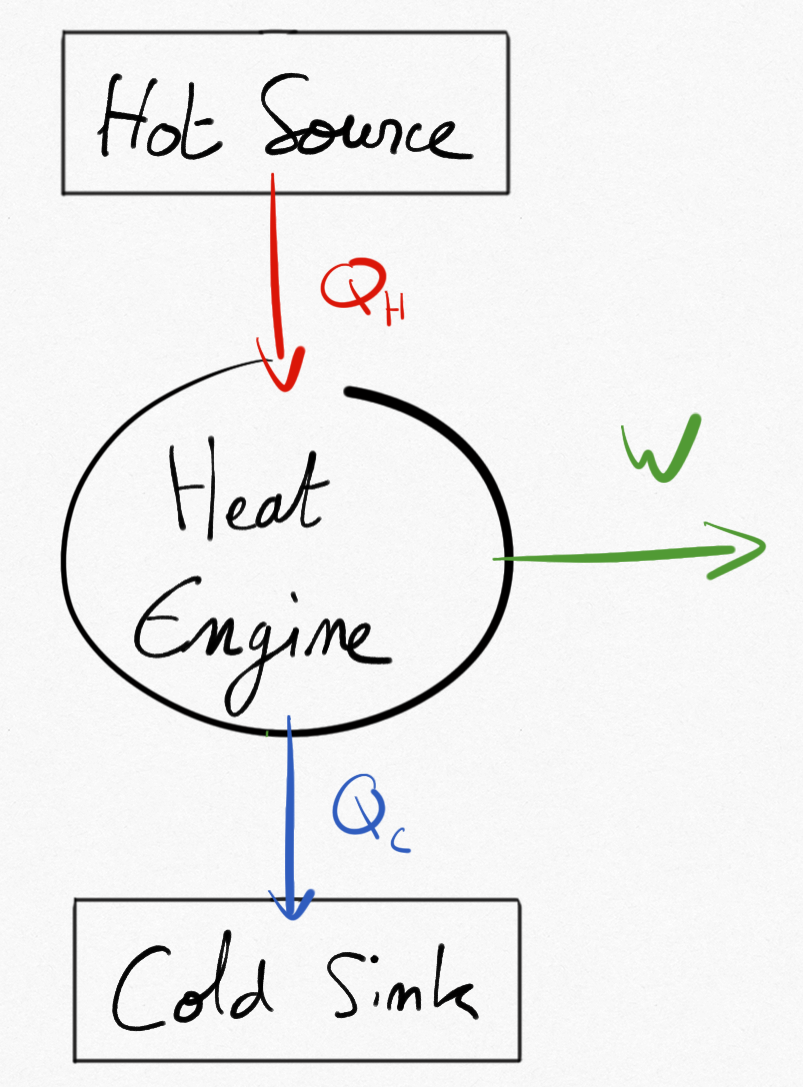 Hot Source
Q_H
Heat
Engine
W
Q_C
Cold Sink